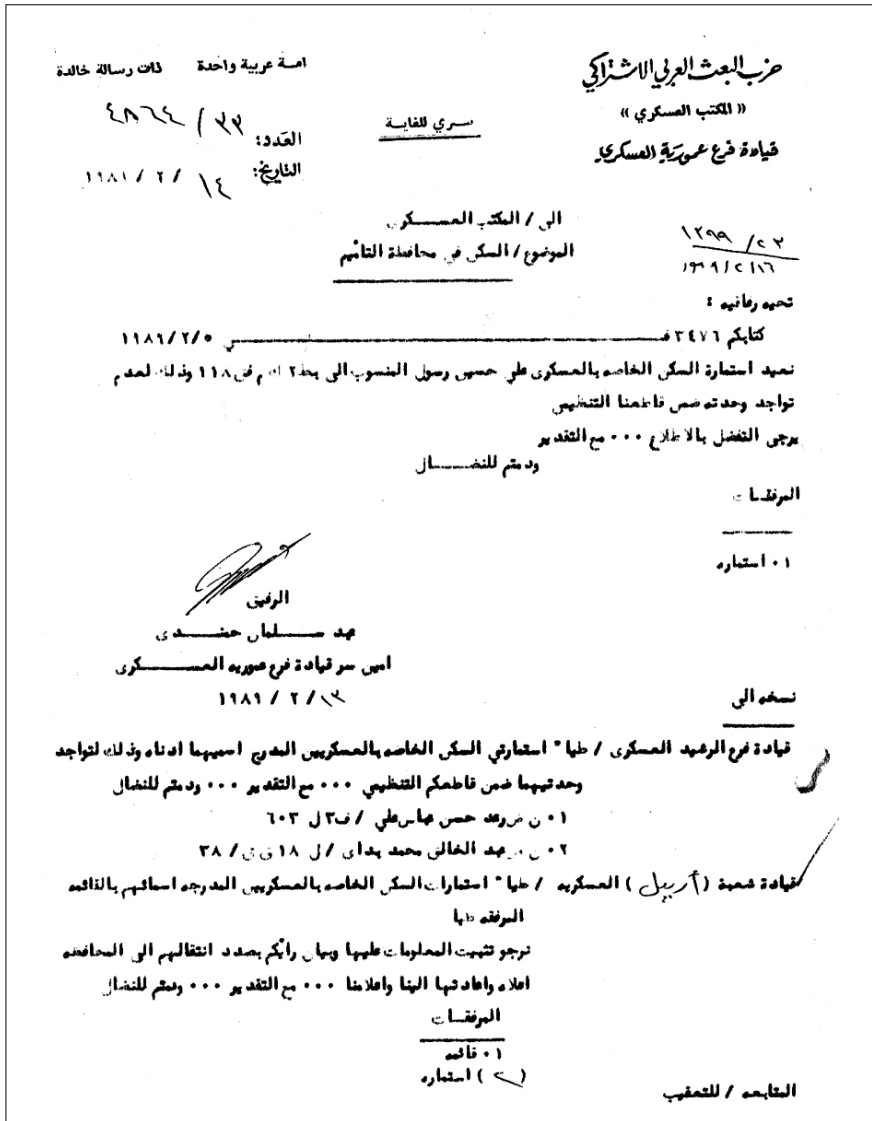 حزب البعث العربي الاشتراكي
امـة عربية واحدة ذات رسالة خالدة
« المكتب العسكري »
قيادة فرع عمورية العسكري
سـري للغايـة
العدد: ٣٣ / ٤٨٦٤
التاريخ: ١٤ / ٢ / ١٩٨١
الى / المكتب العسـكري
الموضوع / السكن في محافظة التأميم
٢٣ / ١٢٩٩
١٦ / ٢ /
تحيه رفاقيه :
كتابكم ٣٤٧٦ فـــي ٥ / ٢ / ١٩٨٩
نعيد استمارة السكن الخاصه بالعسكرى علي حسين رسول المنسوب الى ١١٨ وذلك لعدم
تواجد وحدته ضمن قاطعنا التنظيمي
يرجى التفضل بالاطلاع ٠٠٠ مع التقدير
ودمتم للنضــال
المرفقـات
٠١ استماره
الرفيق
سـلمان
امين سر قيادة فرع عموريه العسـكرى
١٣ / ٢ / ١٩٨٩
نسخه الى
قيادة فرع الرشيد العسكرى / طيا " استمارتي السكن الخاصه بالعسكريين المدرج اسميهما ادناه وذلك لتواجد
وحدتيهما ضمن قاطعكم التنظيمي ٠٠٠ مع التقدير ٠٠٠ ودمتم للنضال
٠١ حسن عباس علي / ف٣ ل ٦٠٣
٠٢ عبد الخالق محمد / ل ١٨ / ٣٨
قيادة شعبة ( أربيل ) العسكريه / طيا " استمارات السكن الخاصه بالعسكريين المدرجه اسمائهم بالقائمه
المرفقه طيا
نرجو تثبيت المعلومات عليها وبيان رأيكم بصدد انتقالهم الى المحافظه
اعلاه واعادتها الينا واعلامنا ٠٠٠ مع التقدير ٠٠٠ ودمتم للنضال
المرفقـات
٠١ قائمه
( ٢ ) استماره
المتابعه / للتعقيب